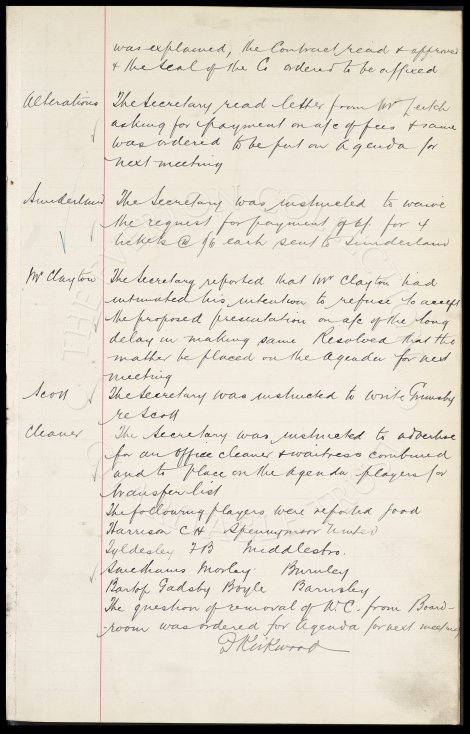 was explained, the Contract read & approved
& the Seal of the Co ordered to be affixed
Alterations The Secretary read letter from Mr Leitch
asking for payment on a/c of fees & same
was ordered to be put on Agenda for
next meeting
Sunderland The Secretary was instructed to waive
the request for payment of 6/- for 4
tickets @ 1/6 each sent to Sunderland
Mr Clayton The Secretary reported that Mr Clayton had
intimated his intention to refuse to accept
the proposed presentation on a/c of the long
delay in making same Resolved that the
matter be placed on the Agenda for next
meeting
Scott The Secretary was instructed to write Grimsby
re Scott
Cleaner The Secretary was instructed to advertise
for an office cleaner & waitress combined
and to place on the Agenda players for
transfer list
The following players were reported good
Harrison CH Spennymoor United
Tyldesley FB Middlesbro.
Smethams Morley Burnley
Bartop Gadsby Boyle Barnsley
The question of removal of W.C. from Board-
room was ordered for Agenda for next meeting
D Kirkwood